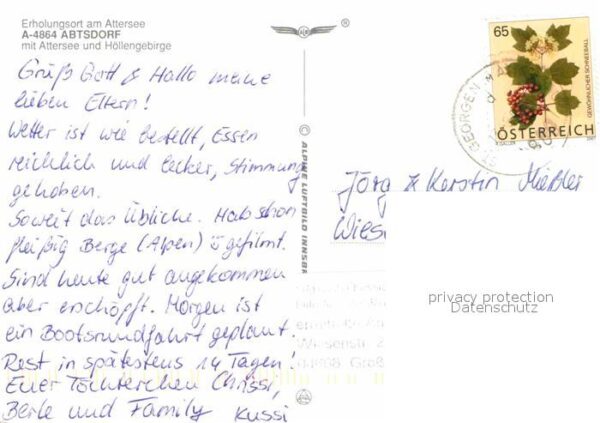 Erholungsort am Attersee
A-4864 ABTSDORF
mit Attersee und Höllengebirge
Grüß Gott & Hallo meine
lieben Eltern!
Wetter ist wie bestellt, Essen
reichlich und lecker, Stimmung
gehoben.
Soweit das Übliche. Hab schon
fleißig Berge (Alpen) gefilmt.
Sind heute gut angekommen
aber erschöpft. Morgen ist
ein Bootsrundfahrt geplant.
Rest in spätestens 14 Tagen!
Euer Töchterchen Chrissi,
Berle und Family Kussi
© ALPINE LUFTBILD INNSB
65
GEWÖHNLICHER SCHNEEBALL
ÖSTERREICH
ST. GEORGEN
Jörg & Kerstin
Wies
privacy protection
Datenschutz